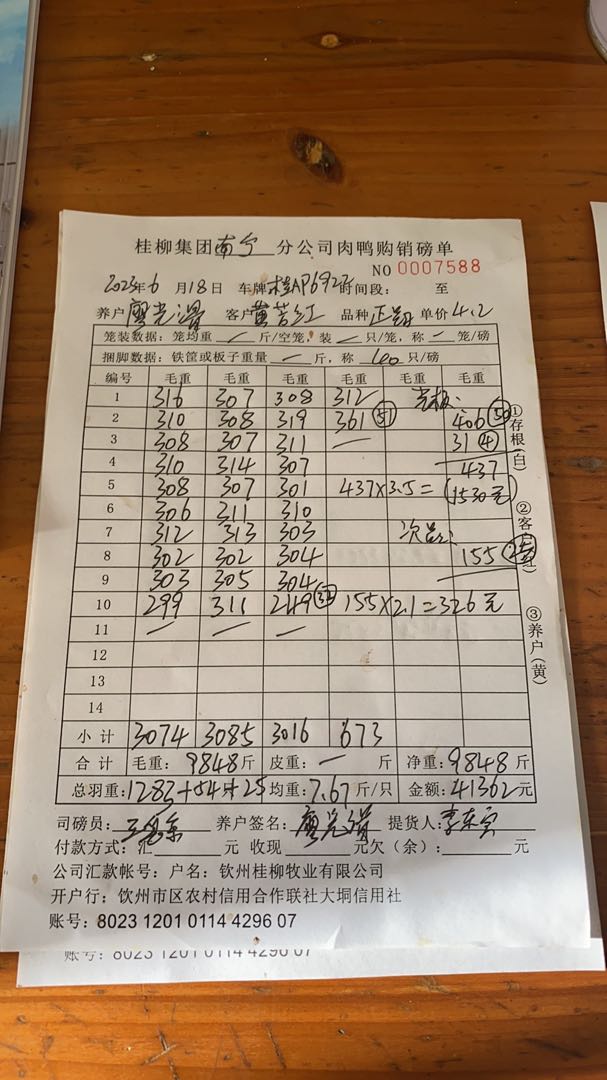 桂柳集团南宁分公司肉鸭购销磅单
NO 0007588
2023年6月18日 车牌桂AP692 时间段: 至
养户 廖光 客户 黄苦红 品种 正 单价4.2
笼装数据: 笼均重 — 斤/空笼, 装 — 只/笼, 称 — 笼/磅
捆脚数据: 铁筐或板子重量 — 斤, 称 40 只/磅
编号 毛重 毛重 毛重 毛重 毛重 毛重
1 316 307 308 312
2 310 308 319 361 51 406 50
3 308 307 311 — 31 4
4 310 314 307 437
5 308 307 301 437×3.5= (1530元)
6 306 311 310
7 312 313 303 次
8 302 302 304 155
9 303 305 304
10 299 311 249 32 155×2.1=326元
11 — — —
12
13
14
小计 3074 3085 3016 673
合计 毛重: 9848斤 皮重: — 斤 净重: 9848斤
总羽重: 1283+54+25 均重: 7.67斤/只 金额: 41362元
司磅员: 养户签名: 廖光 提货人: 李东
付款方式: 汇 元 收现 元欠(余): 元
公司汇款帐号: 户名: 钦州桂柳牧业有限公司
开户行: 钦州市区农村信用合作联社大垌信用社
账号: 8023 1201 0114 4296 07
①存根(白)
②客户(红)
③养户(黄)
账号: 8023 1201 0114 4296 07